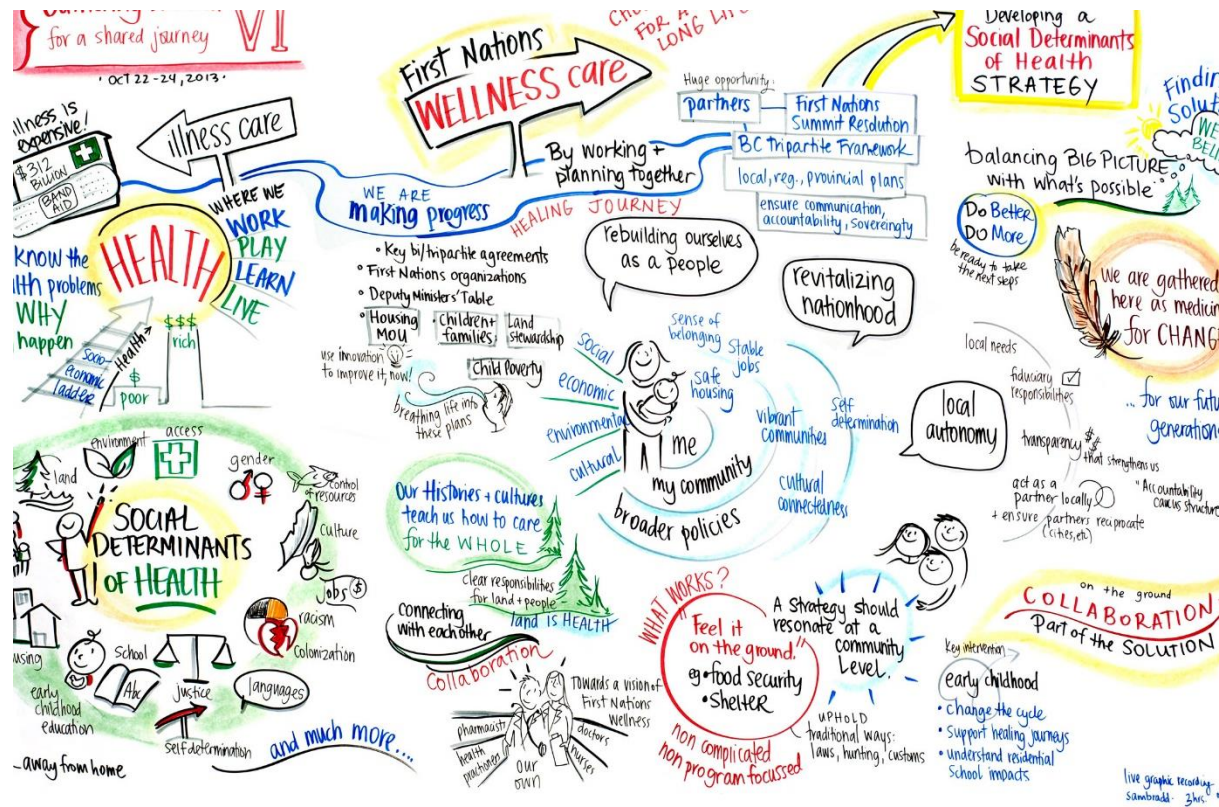 for a shared journey
VI
· OCT 22-24, 2013 ·
illness is
expensive!
$312
BILLION
BAND
AID
illness care
HEALTH
WHERE WE
WORK
PLAY
LEARN
LIVE
KNOW the
WHY
happen
Socio-
economic
ladder
Health
$
poor
$$$
rich
First Nations
WELLNESS CARE
FOR A
LONG LIFE
WE ARE
making progress
By working +
planning together
HEALING JOURNEY
• Key bi/tripartite agreements
• First Nations organizations
• Deputy Ministers' Table
• Housing
MOU
• Children +
families
Land
stewardship
Child Poverty
use innovation
to improve it, now!
breathing life into
these plans
Huge opportunity:
partners
First Nations
Summit Resolution
BC Tripartite Framework
local, reg., provincial plans
ensure communication,
accountability, sovereingty
Developing a
Social Determinants
of Health
STRATEGY
balancing BIG PICTURE
with what's possible
Do Better
Do More
be ready to take
the next steps
we are gathered
here as medicine
for CHANGE
... for our future
generations
rebuilding ourselves
as a people
revitalizing
nationhood
social
economic
environmental
cultural
me
my community
broader policies
sense of
belonging
stable
jobs
safe
housing
vibrant
communities
self
determination
cultural
connectedness
local
autonomy
local needs
fiduciary
responsibilities
transparency
$$
that strengthens us
act as a
partner locally
+ ensure partners reciprocate
(cities, etc)
"Accountability
caucus structure
SOCIAL
DETERMINANTS
OF HEALTH
land
environment
access
gender
control
of resources
culture
jobs $
racism
colonization
languages
justice
self determination
School
Abc
early
childhood
education
away from home
and much more...
Our Histories + cultures
teach us how to care
for the WHOLE
Clear responsibilities
for land + people
land is HEALTH
Connecting
with each other
Collaboration
pharmacist
health
practitioner
our
own
doctors
nurses
Towards a vision of
First Nations
Wellness
WHAT WORKS?
"Feel it
on the ground."
eg • food security
• Shelter
non complicated
non program focussed
A strategy should
resonate at a
community
Level.
UPHOLD
traditional ways:
laws, hunting, customs
on the ground
COLLABORATION
Part of the SOLUTION
Key intervention
early childhood
• Change the cycle
• Support healing journeys
• understand residential
School impacts
live graphic recording
sambradd · 3hrs